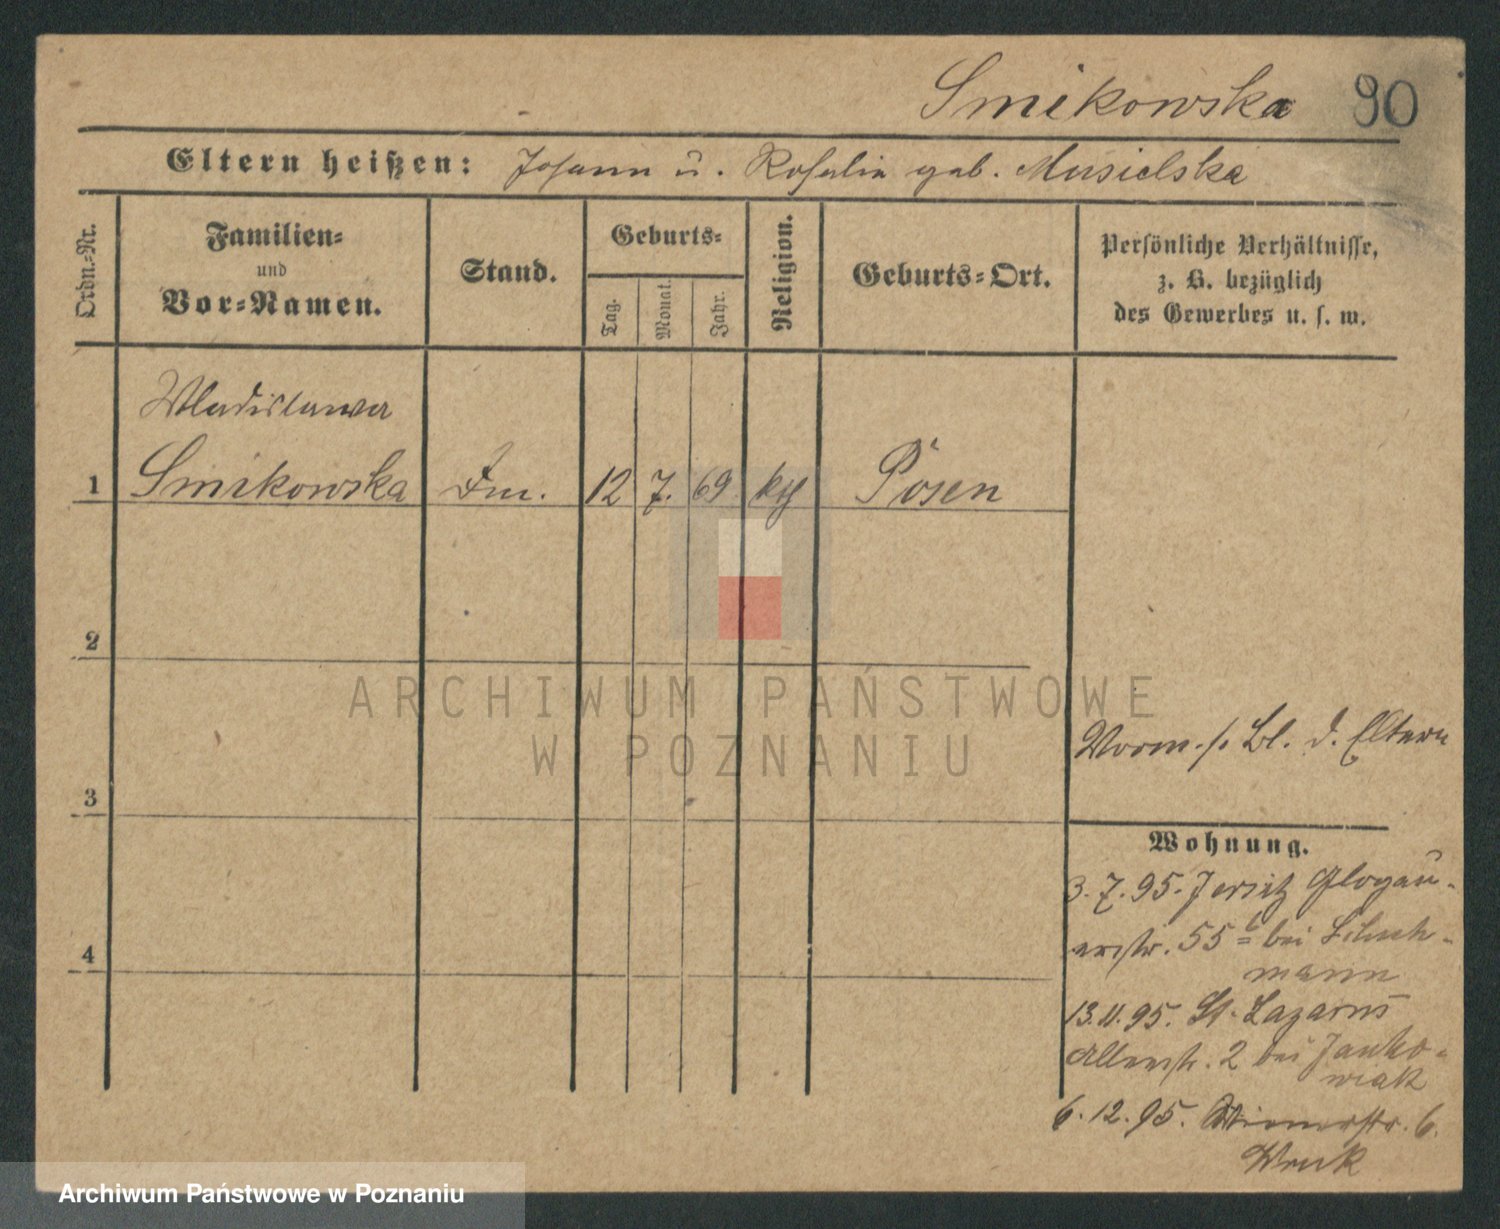 Smikowska 90
Eltern heißen: Johann u. Rosalia geb. Musielska
Ordn.-Nr.
Familien-
und
Vor-Namen.
Stand.
Geburts-
Tag.
Monat.
Jahr.
Religion.
Geburts-Ort.
Persönliche Verhältnisse,
z. B. bezüglich
des Gewerbes u. s. w.
Wladislawa
1 Smikowska 12 7. 69 Posen
2
3
4
Vorm. s. Bl. d. Eltern
Wohnung.
3.7.95. Jersitz Glogau-
erstr. 55 b bei
mann
13.11.95. St. Lazarus
str. 2 bei Janko-
wiak
6.12.95. 6.
ARCHIWUM PAŃSTWOWE
W POZNANIU
Archiwum Państwowe w Poznaniu